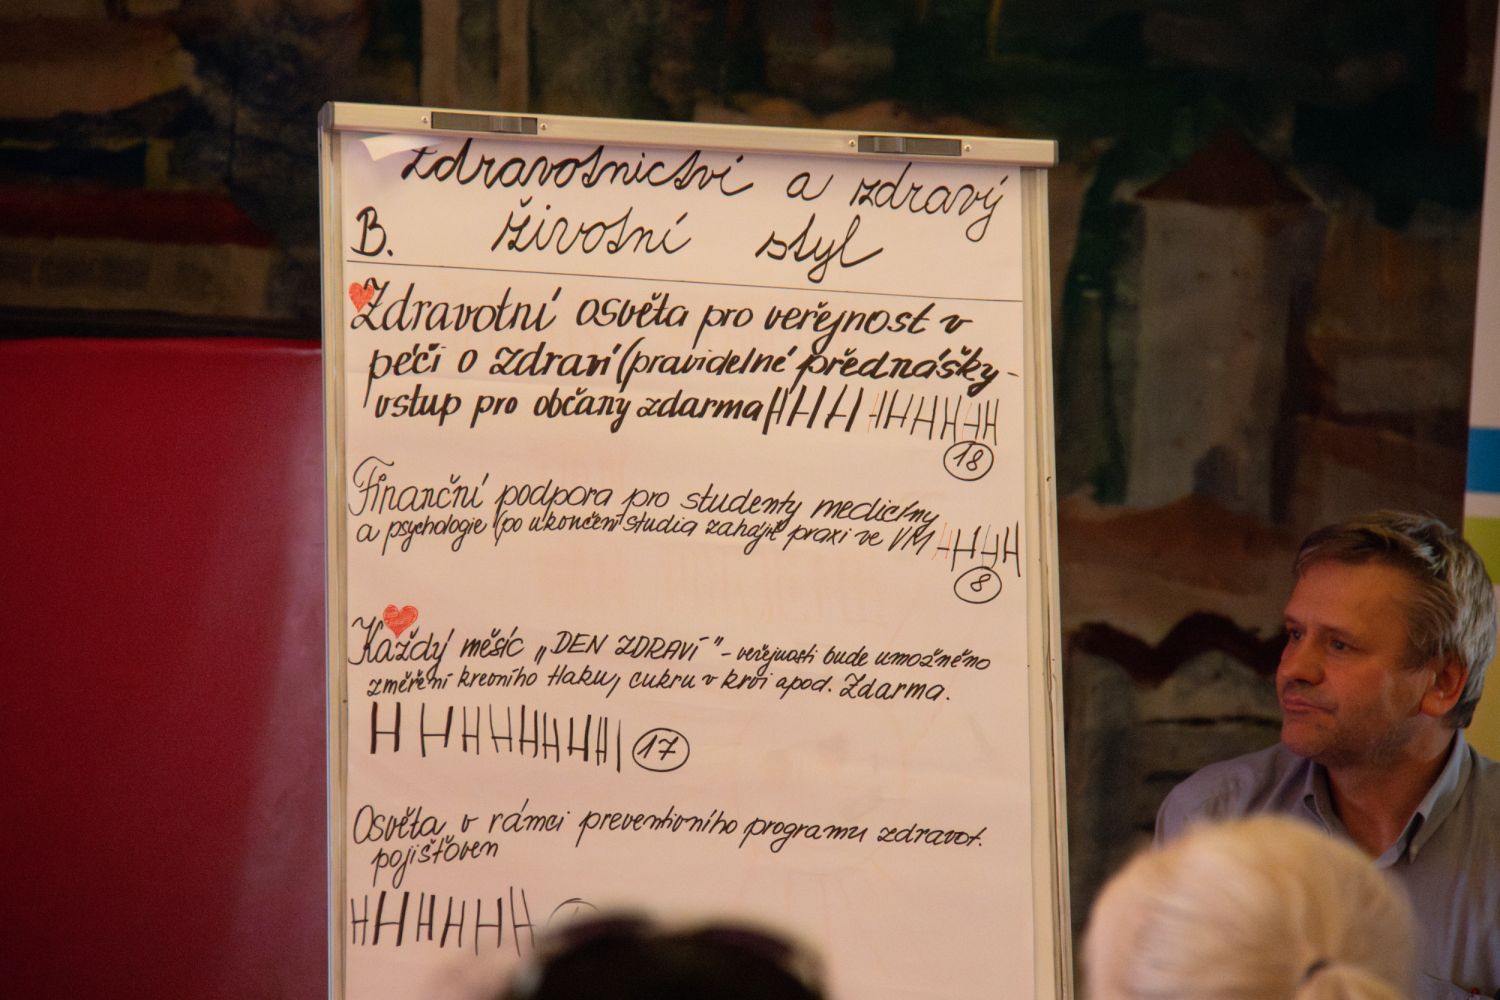 Zdravotnictví a zdravý
B. životní styl
Zdravotní osvěta pro veřejnost v
péči o zdraví (pravidelné přednášky -
vstup pro občany zdarma)
18
Finanční podpora pro studenty medicíny
a psychologie (po ukončení studia zahájit praxi ve VM
8
Každý měsíc „DEN ZDRAVÍ" - veřejnosti bude umožněno
změření krevního tlaku, cukru v krvi apod. Zdarma.
17
Osvěta v rámci preventivního programu zdravot.
pojišťoven